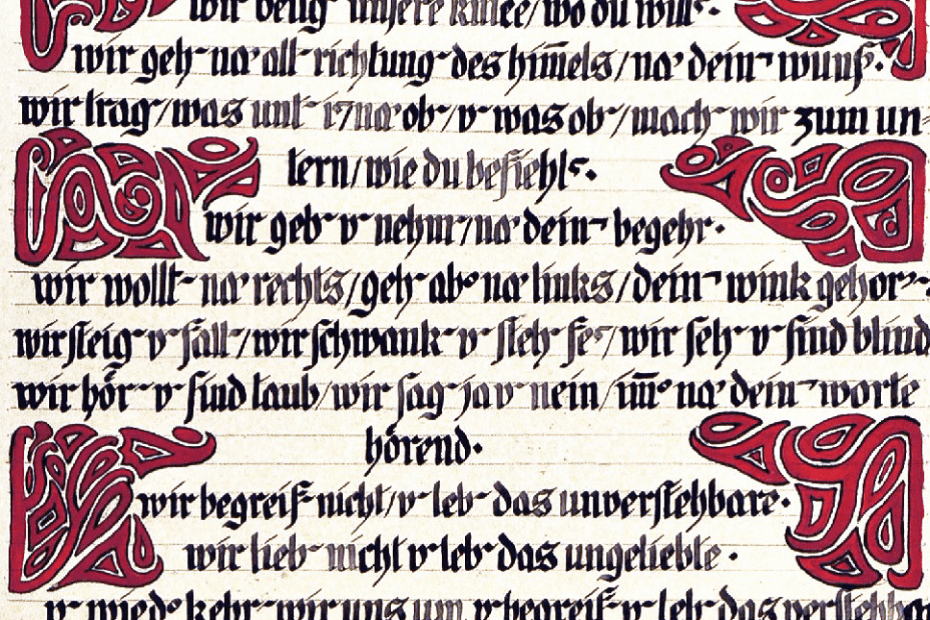 wir beug⁓ unsere kniee/wo du will⁓.
wir geh⁓ na⁓ all⁓ richtung⁓ des him̄els/na⁓ dein⁓ wunſ⁓.
wir trag⁓/was unt⁓ iſt/na⁓ ob⁓/v⁓ was ob⁓/mach⁓ wir zum un-
tern/wie du befiehlſ⁓.
wir geb⁓ v⁓ nehm⁓/na⁓ dein⁓ begehr.
wir wollt⁓ na⁓ rechts/geh⁓ ab⁓ na⁓ links/dein⁓ wink gehor⁓⁓.
wir ſteig⁓ v⁓ fall⁓/wir ſchwank⁓ v⁓ ſteh⁓ fe⁓/wir ſeh⁓ v⁓ ſind blind
wir hör⁓ v⁓ ſind taub/wir ſag⁓ ja v⁓ nein/im̄⁓ na⁓ dein⁓ worte
hörend.
wir begreif⁓ nicht/v⁓ leb⁓ das unverſtehbare.
wir lieb⁓ nicht v⁓ leb⁓ das ungeliebte.
v⁓ wied⁓ kehr⁓ wir uns um v⁓ begreif⁓ v⁓ leb⁓ das verſtehbar